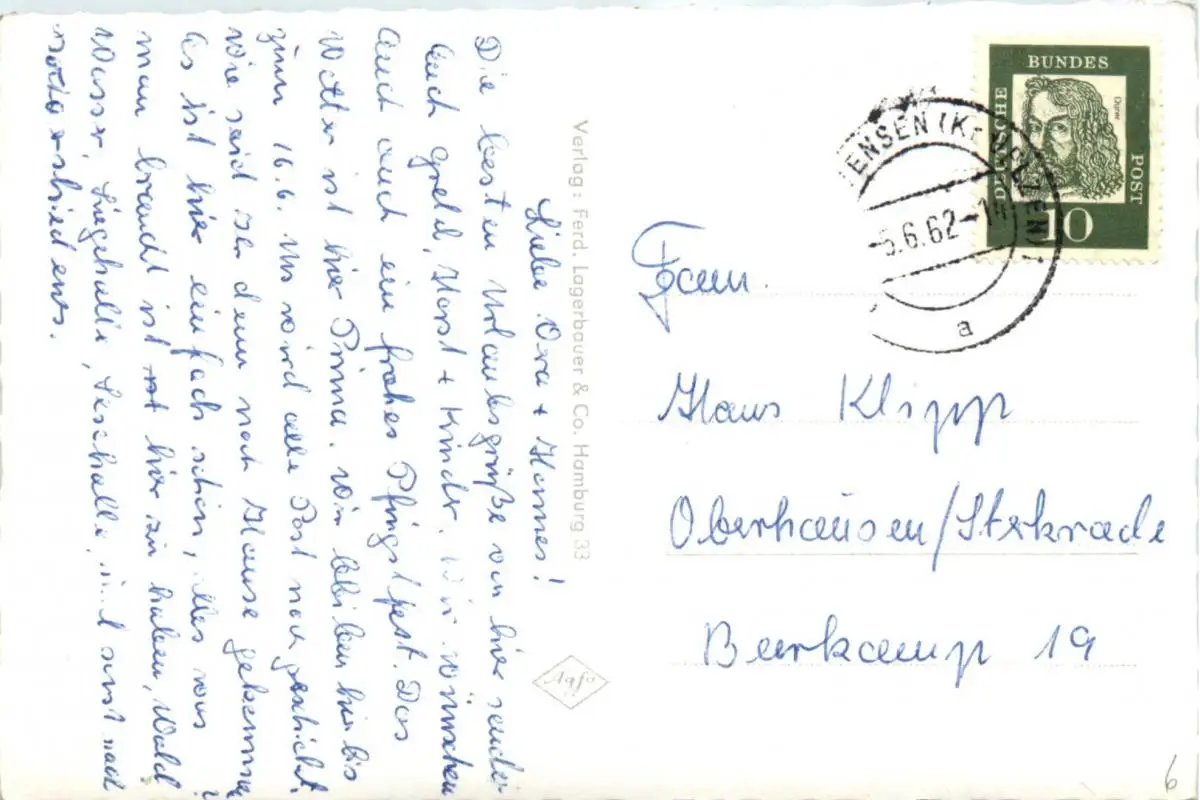 Liebe Ora + Hannes!
Die besten Urlaubsgrüße von hier senden
Euch Gretel, Horst + Kinder. Wir wünschen
Euch auch ein frohes Pfingstfest. Das
Wetter ist hier Prima. Wir bleiben hier bis
zum 16.6. Uns wird alle Post nachgeschickt.
Wie seid ihr denn nach Hause gekommen?
Es ist hier einfach schön, alles was
man braucht ist hier zu haben, Wald
Wasser, Liegehalle, Lesehalle,
Verlag: Ferd. Lagerbauer & Co. Hamburg 33
Agfa
DEUTSCHE BUNDES POST
Dürer
10
ENSEN (KR UELZEN)
5.6.62-14
a
Fam.
Hans Klipp
Oberhausen/Sterkrade
Burkamp 19
6